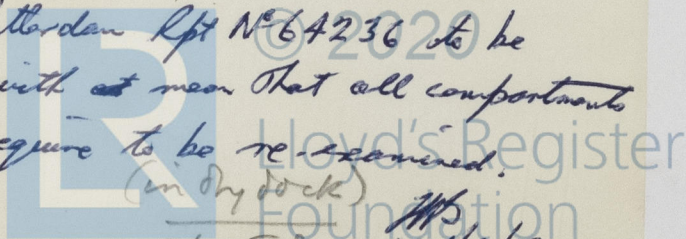 tterdam Rpt Nº 64236 to be
with mean that all compartments
equire to be re-examined.
(in dry dock)
© 2020
Lloyd's Register
Foundation
LR